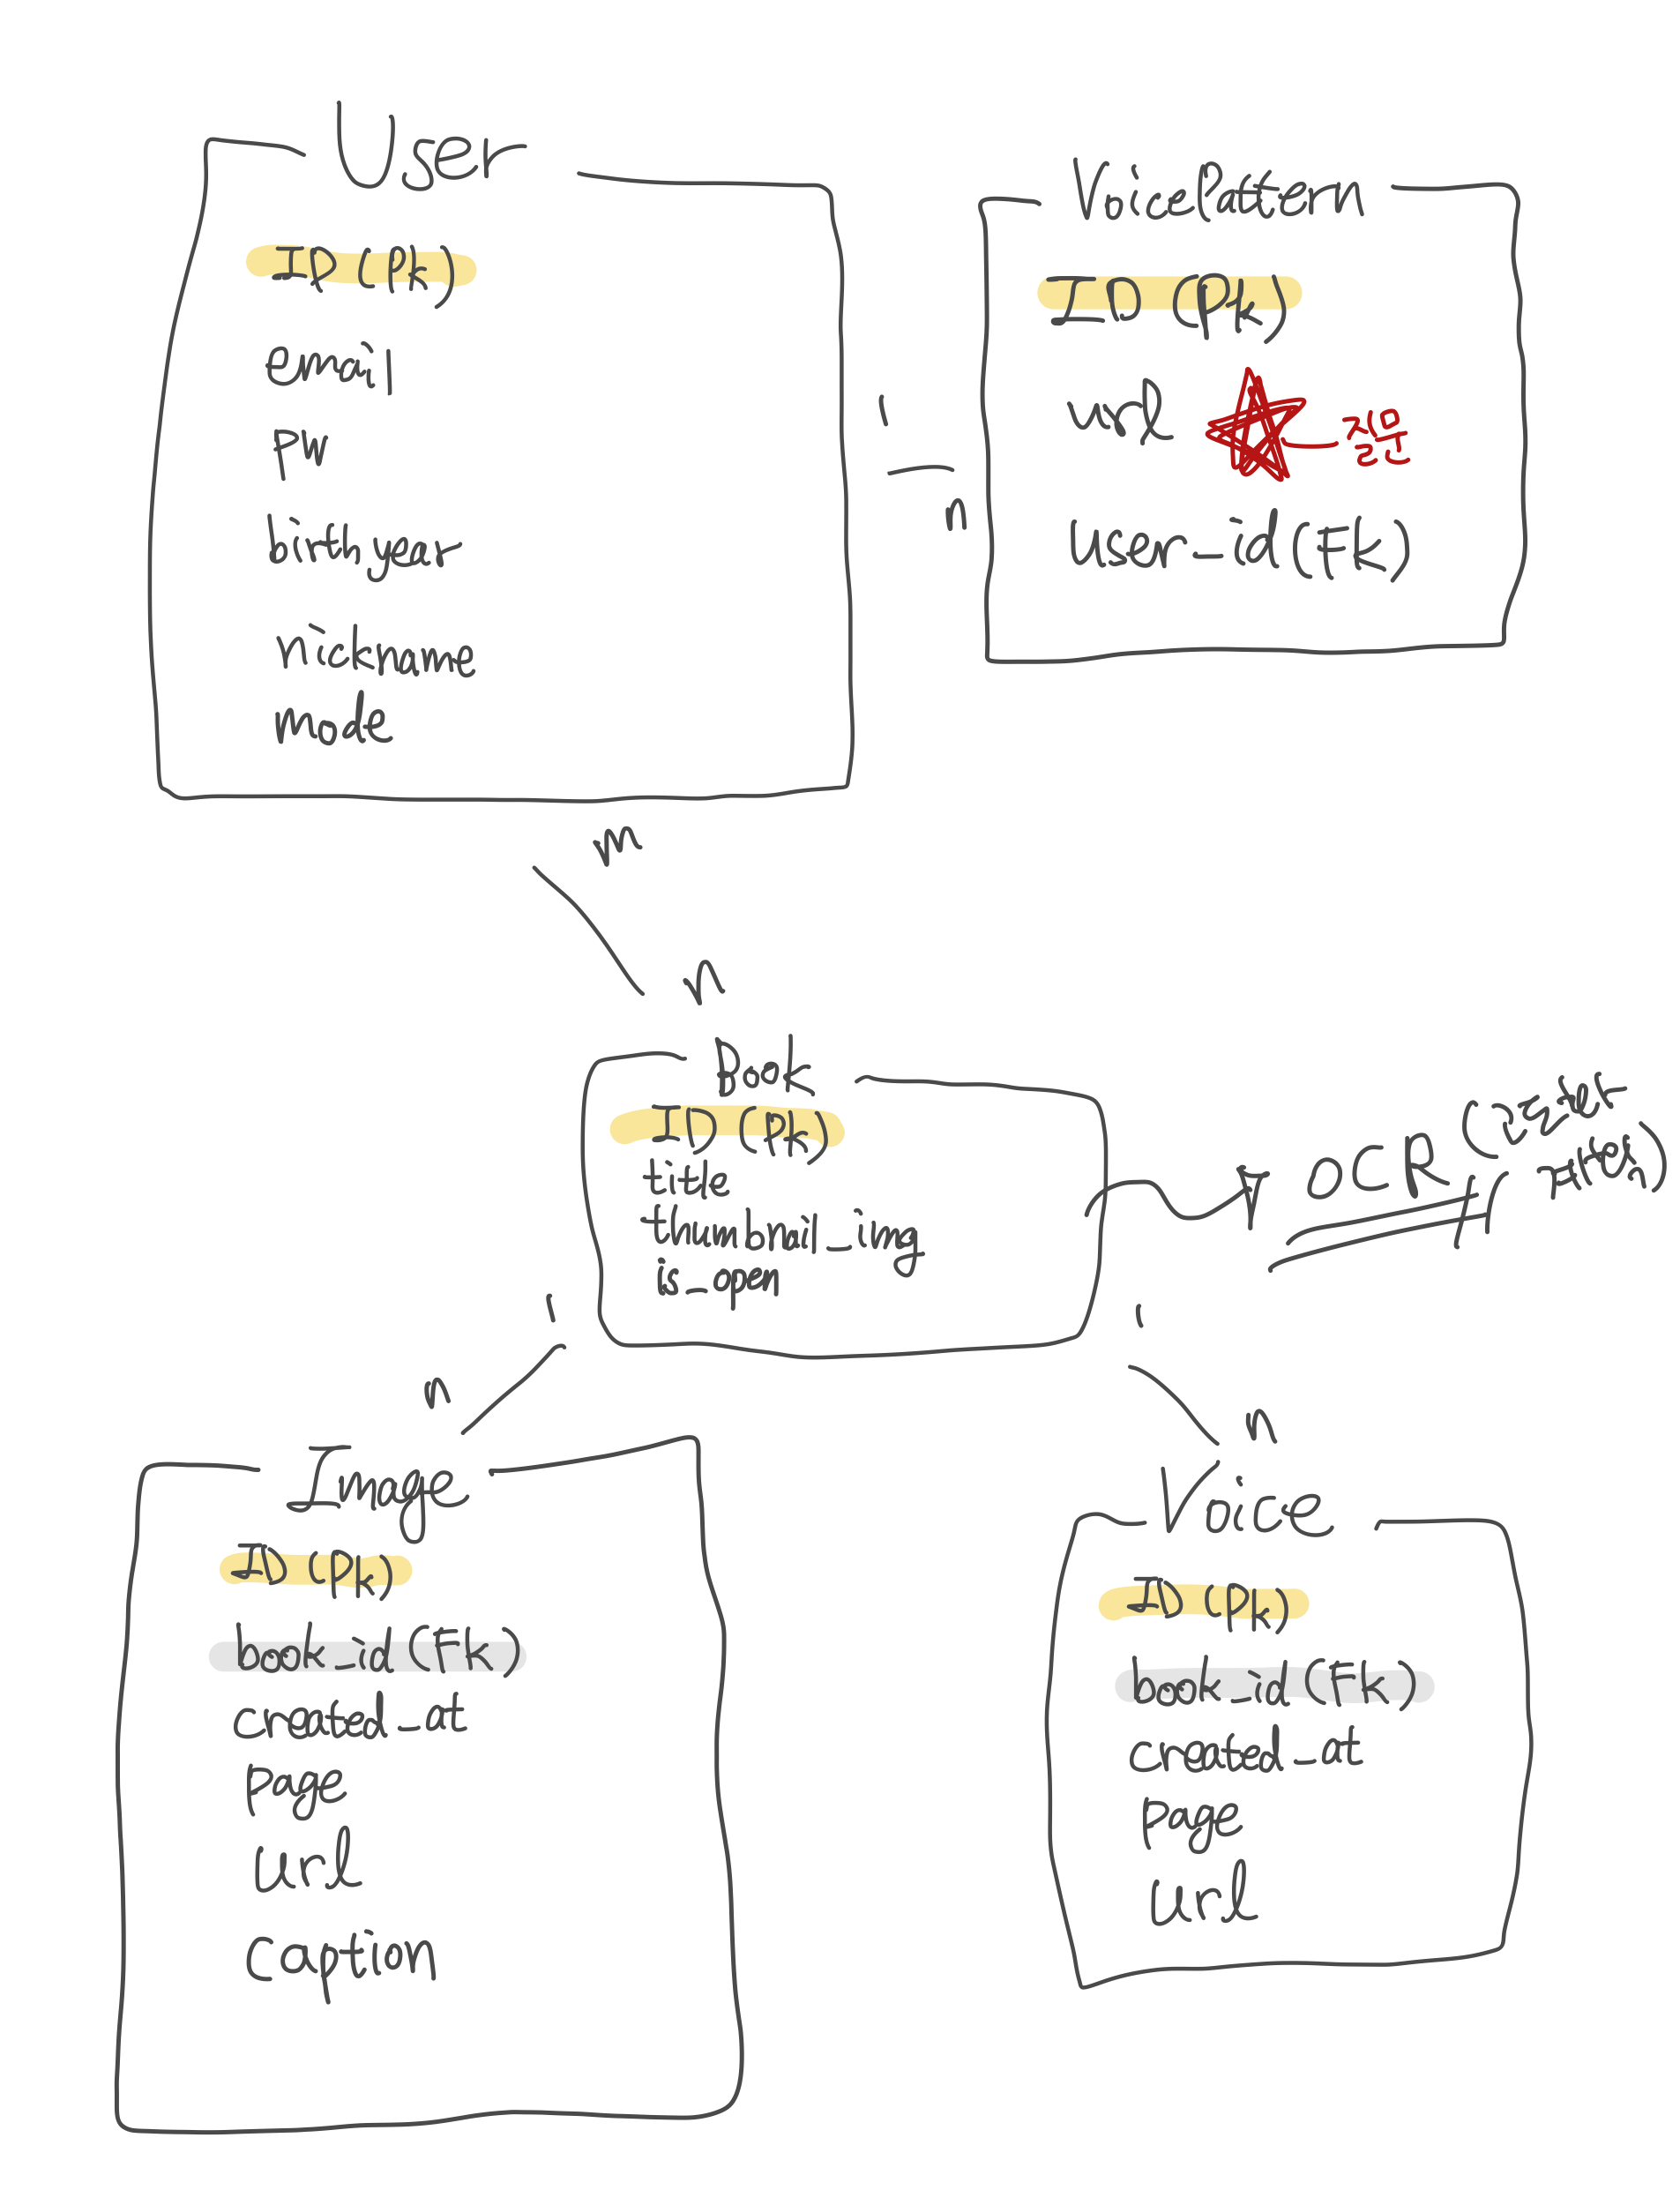 User
ID (Pk)
email
pw
birthyear
nickname
mode
VoicePattern
ID (Pk)
url
질문
user_id (FK)
1
n
m
n
Book
ID (Pk)
title
thumbnail_img
is_open
OCR
1
n
1
n
Image
ID (Pk)
book_id (Fk)
created_at
page
url
caption
Voice
ID (Pk)
book_id (Fk)
created_at
page
url